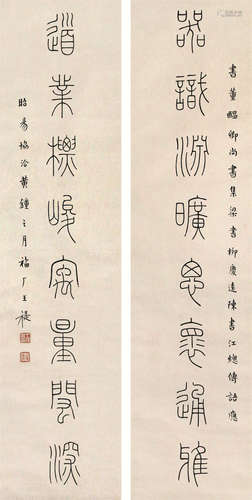 器識淵曠思懷通雅
書董醞卿尚書集梁書柳慶遠陳書江總傳語應
道業標峻寓量閎深
昭易協洽黃鍾之月福厂王禔